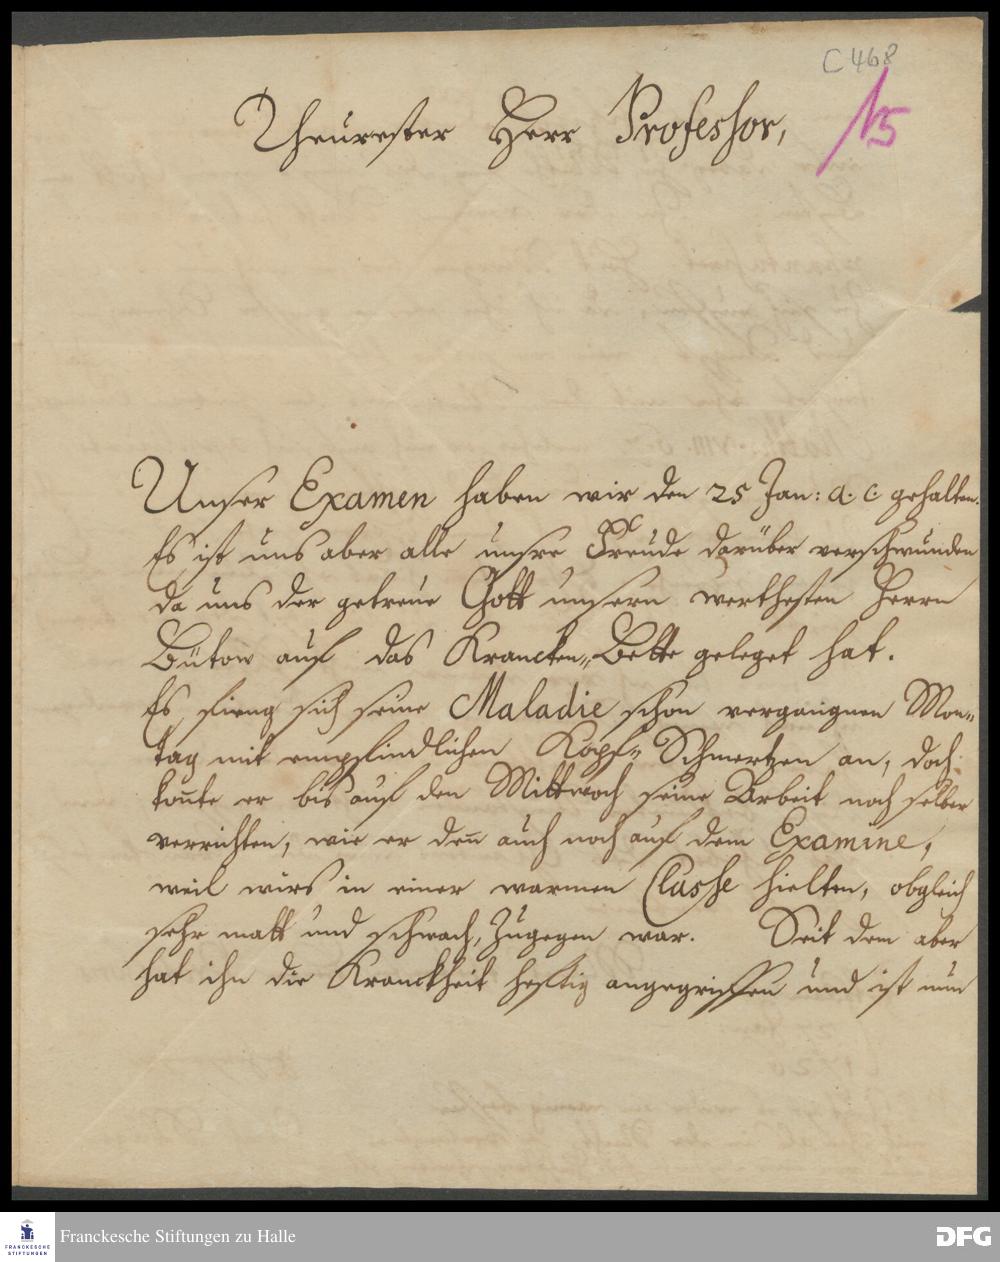 C 468
15
Theurester Herr Professor,
Unser Examen haben wir den 25 Jan: a. c. gehalten.
Es ist uns aber alle unsre Freude darüber verschwunden
da uns der getreue Gott unsern werthesten Herrn
Bütow auf das Krancken-Bette geleget hat.
Es fieng sich seine Maladie schon vergangnen Mon-
tag mit empfindlichen Kopf-Schmertzen an, doch
kon̄te er bis auf den Mittwoch seine Arbeit noch selber
verrichten, wie er den̄ auch noch auf dem Examine,
weil wirs in einer warmen Classe hielten, obgleich
sehr matt und schwach, zugegen war. Seit dem aber
hat ihn die Kranckheit heftig angegriffen und ist nun
FRANCKESCHE
STIFTUNGEN
Franckesche Stiftungen zu Halle
DFG